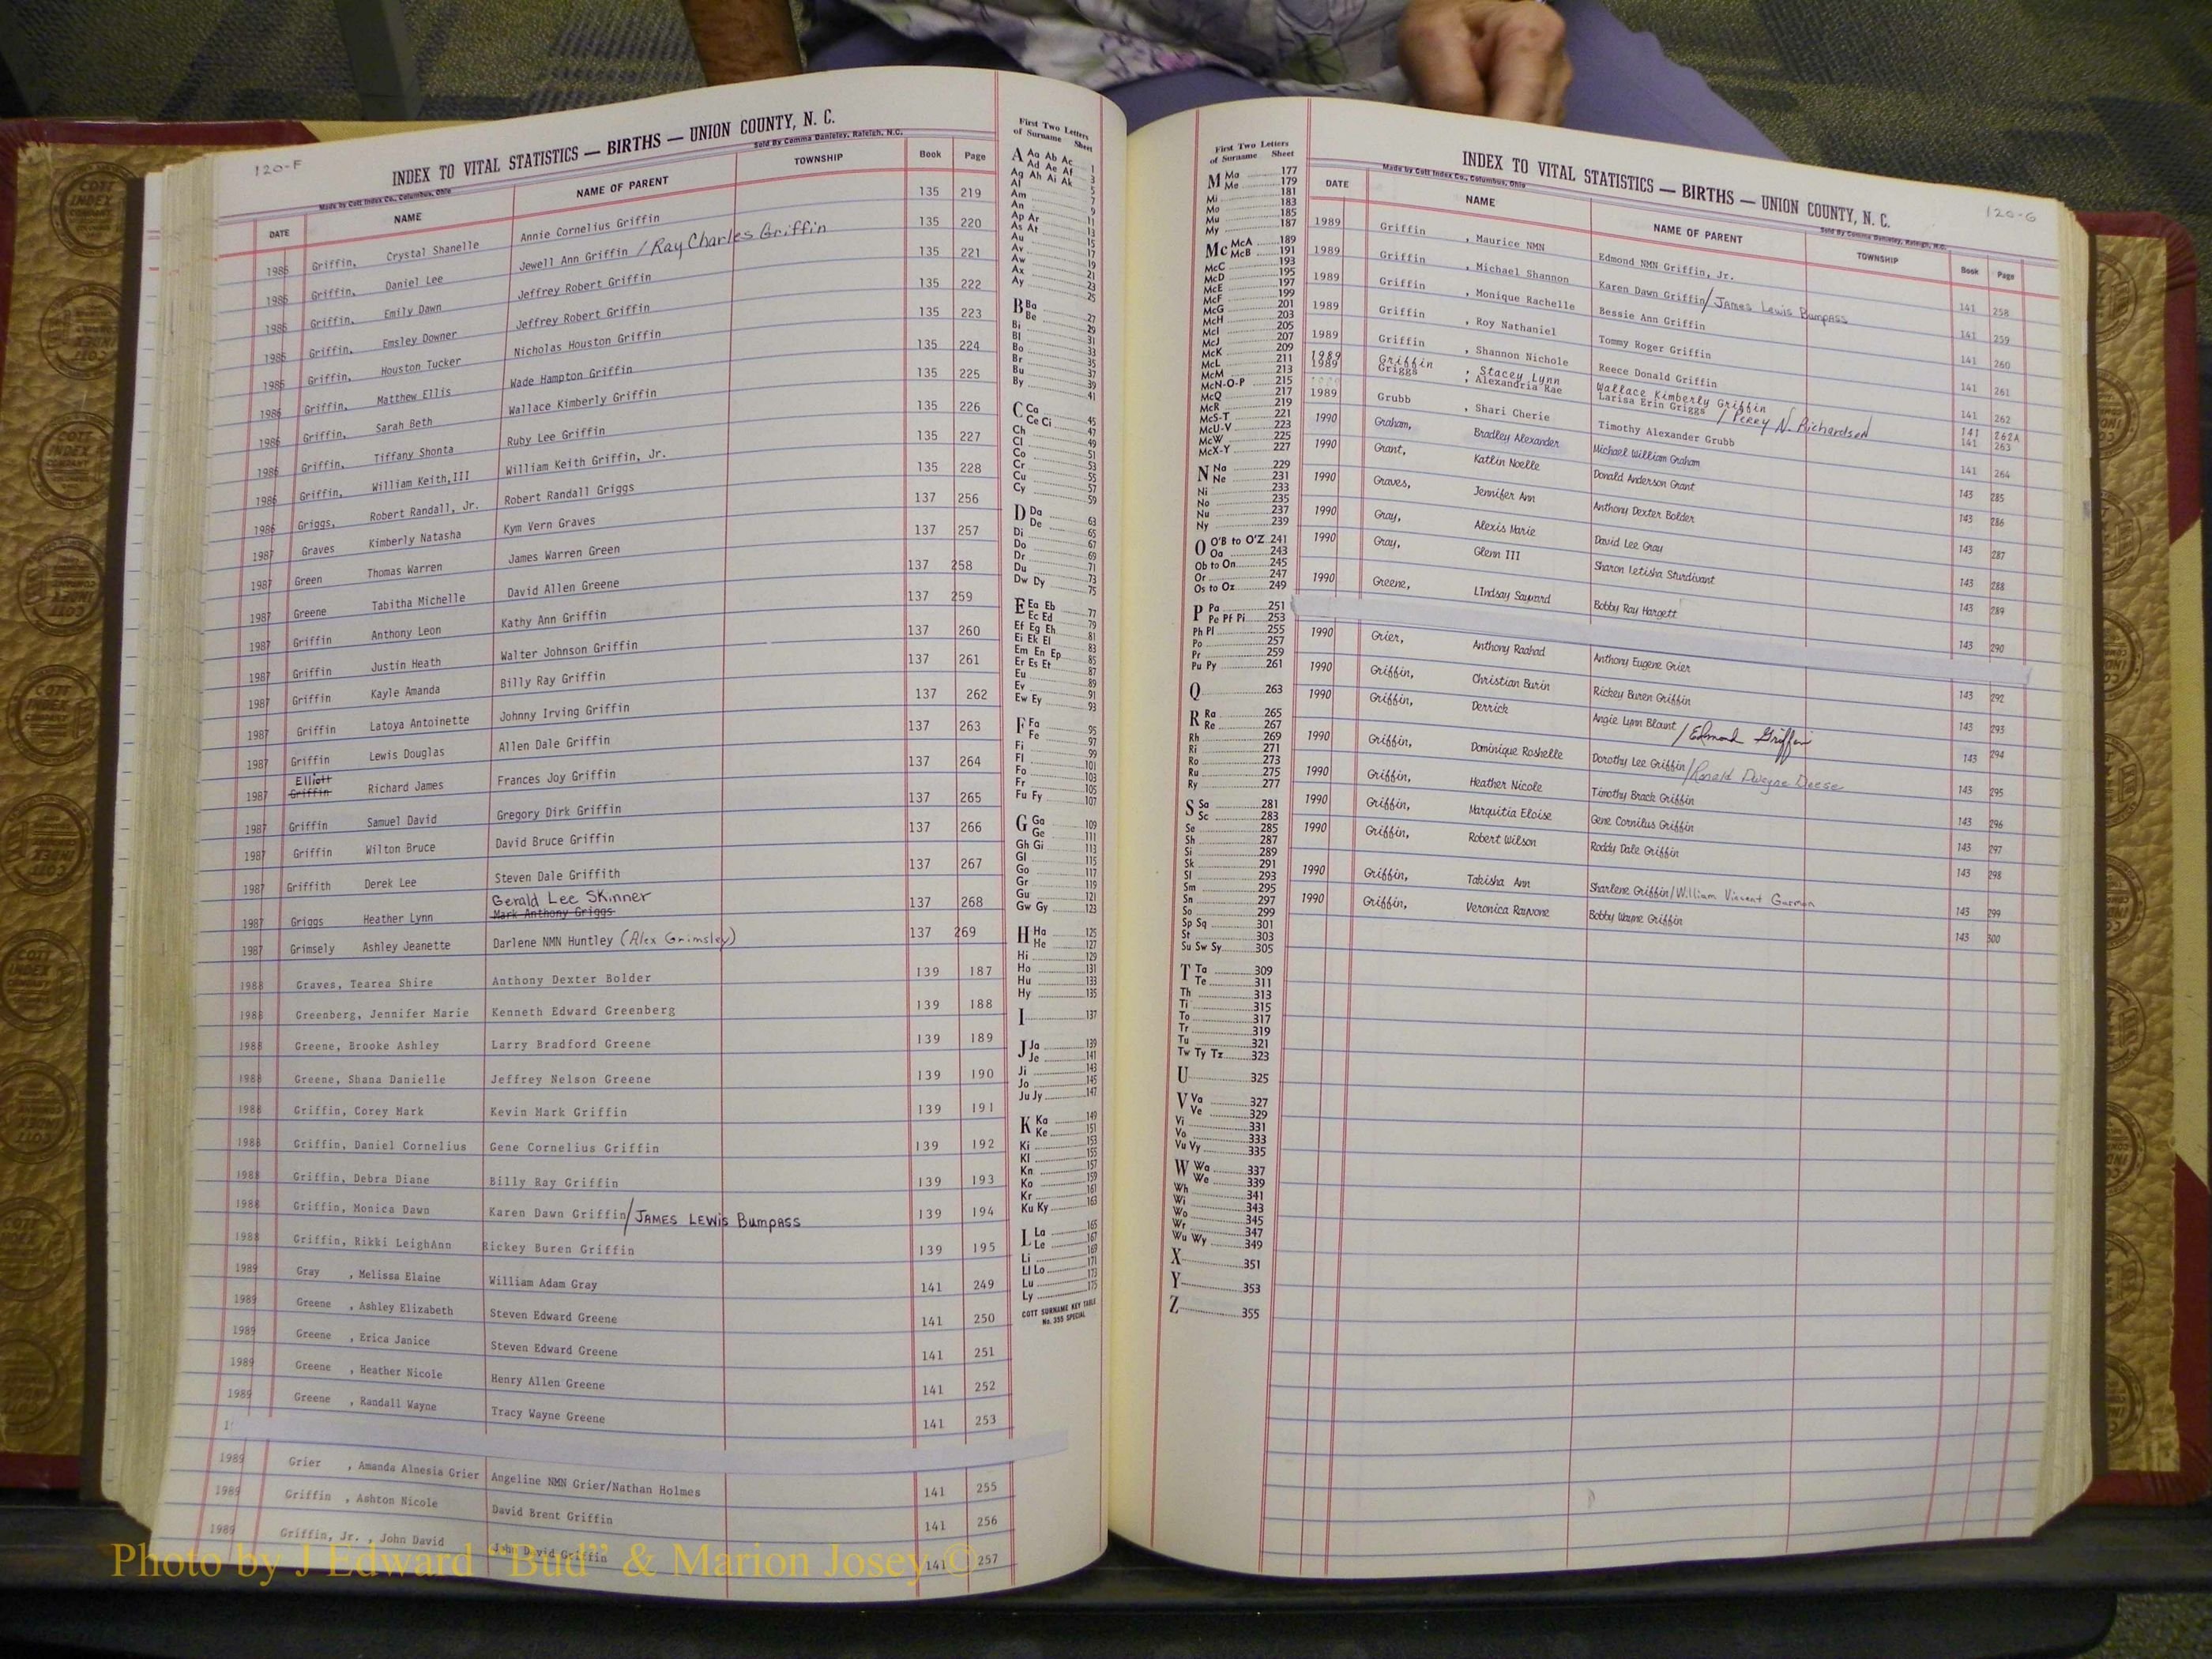 120-F
INDEX TO VITAL STATISTICS — BIRTHS — UNION COUNTY, N. C.
Made by Cott Index Co., Columbus, Ohio Sold By Comma Danieley, Raleigh, N.C.
DATE NAME NAME OF PARENT TOWNSHIP Book Page
1986 Griffin, Crystal Shanelle Annie Cornelius Griffin 135 219
1986 Griffin, Daniel Lee Jewell Ann Griffin / Ray Charles Griffin 135 220
1986 Griffin, Emily Dawn Jeffrey Robert Griffin 135 221
1986 Griffin, Emsley Downer Jeffrey Robert Griffin 135 222
1986 Griffin, Houston Tucker Nicholas Houston Griffin 135 223
1986 Griffin, Matthew Ellis Wade Hampton Griffin 135 224
1986 Griffin, Sarah Beth Wallace Kimberly Griffin 135 225
1986 Griffin, Tiffany Shonta Ruby Lee Griffin 135 226
1986 Griffin, William Keith,III William Keith Griffin, Jr. 135 227
1986 Griggs, Robert Randall, Jr. Robert Randall Griggs 135 228
1987 Graves Kimberly Natasha Kym Vern Graves 137 256
1987 Green Thomas Warren James Warren Green 137 257
1987 Greene Tabitha Michelle David Allen Greene 137 258
1987 Griffin Anthony Leon Kathy Ann Griffin 137 259
1987 Griffin Justin Heath Walter Johnson Griffin 137 260
1987 Griffin Kayle Amanda Billy Ray Griffin 137 261
1987 Griffin Latoya Antoinette Johnny Irving Griffin 137 262
1987 Griffin Lewis Douglas Allen Dale Griffin 137 263
Elliott
1987 Griffin Richard James Frances Joy Griffin 137 264
1987 Griffin Samuel David Gregory Dirk Griffin 137 265
1987 Griffin Wilton Bruce David Bruce Griffin 137 266
1987 Griffith Derek Lee Steven Dale Griffith 137 267
Gerald Lee Skinner
1987 Griggs Heather Lynn Mark Anthony Griggs 137 268
1987 Grimsely Ashley Jeanette Darlene NMN Huntley (Alex Grimsley) 137 269
1988 Graves, Tearea Shire Anthony Dexter Bolder 139 187
1988 Greenberg, Jennifer Marie Kenneth Edward Greenberg 139 188
1988 Greene, Brooke Ashley Larry Bradford Greene 139 189
1988 Greene, Shana Danielle Jeffrey Nelson Greene 139 190
1988 Griffin, Corey Mark Kevin Mark Griffin 139 191
1988 Griffin, Daniel Cornelius Gene Cornelius Griffin 139 192
1988 Griffin, Debra Diane Billy Ray Griffin 139 193
1988 Griffin, Monica Dawn Karen Dawn Griffin/JAMES LEWIS Bumpass 139 194
1988 Griffin, Rikki LeighAnn Rickey Buren Griffin 139 195
1989 Gray , Melissa Elaine William Adam Gray 141 249
1989 Greene , Ashley Elizabeth Steven Edward Greene 141 250
1989 Greene , Erica Janice Steven Edward Greene 141 251
1989 Greene , Heather Nicole Henry Allen Greene 141 252
1989 Greene , Randall Wayne Tracy Wayne Greene 141 253
1989 Grier , Amanda Alnesia Grier Angeline NMN Grier/Nathan Holmes 141 255
1989 Griffin , Ashton Nicole David Brent Griffin 141 256
1989 Griffin, Jr. , John David John David Griffin 141 257
First Two Letters
of Surname Sheet
A Aa Ab Ac 1
Ad Ae Af 3
Ag Ah Ai Ak 5
Al 7
Am 9
An 11
Ap Ar 13
As At 15
Au 17
Av 19
Aw 21
Ax 23
Ay 25
B Ba 27
Be 29
Bi 31
Bl 33
Bo 35
Br 37
Bu 39
By 41
C Ca 45
Ce Ci 47
Ch 49
Cl 51
Co 53
Cr 55
Cu 57
Cy 59
D Da 63
De 65
Di 67
Do 69
Dr 71
Du 73
Dw Dy 75
E Ea Eb 77
Ec Ed 79
Ef Eg Eh 81
Ei Ek El 83
Em En Ep 85
Er Es Et 87
Eu 89
Ev 91
Ew Ey 93
F Fa 95
Fe 97
Fi 99
Fl 101
Fo 103
Fr 105
Fu Fy 107
G Ga 109
Ge 111
Gh Gi 113
Gl 115
Go 117
Gr 119
Gu 121
Gw Gy 123
H Ha 125
He 127
Hi 129
Ho 131
Hu 133
Hy 135
I 137
J Ja 139
Je 141
Ji 143
Jo 145
Ju Jy 147
K Ka 149
Ke 151
Ki 153
Kl 155
Kn 157
Ko 159
Kr 161
Ku Ky 163
L La 165
Le 167
Li 169
Ll Lo 171
Lu 173
Ly 175
COTT SURNAME KEY TABLE
No. 355 SPECIAL
First Two Letters
of Surname Sheet
M Ma 177
Me 179
Mi 181
Mo 183
Mu 185
My 187
Mc McA 189
McB 191
McC 193
McD 195
McE 197
McF 199
McG 201
McH 203
McI 205
McJ 207
McK 209
McL 211
McM 213
McN-O-P 215
McQ 217
McR 219
McS-T 221
McU-V 223
McW 225
McX-Y 227
N Na 229
Ne 231
Ni 233
No 235
Nu 237
Ny 239
O O'B to O'Z 241
Oa 243
Ob to On 245
Or 247
Os to Oz 249
P Pa 251
Pe Pf Pi 253
Ph Pl 255
Po 257
Pr 259
Pu Py 261
Q 263
R Ra 265
Re 267
Rh 269
Ri 271
Ro 273
Ru 275
Ry 277
S Sa 281
Sc 283
Se 285
Sh 287
Si 289
Sk 291
Sl 293
Sm 295
Sn 297
So 299
Sp Sq 301
St 303
Su Sw Sy 305
T Ta 309
Te 311
Th 313
Ti 315
To 317
Tr 319
Tu 321
Tw Ty Tz 323
U 325
V Va 327
Ve 329
Vi 331
Vo 333
Vu Vy 335
W Wa 337
We 339
Wh 341
Wi 343
Wo 345
Wr 347
Wu Wy 349
X 351
Y 353
Z 355
120-G
INDEX TO VITAL STATISTICS — BIRTHS — UNION COUNTY, N. C.
Made by Cott Index Co., Columbus, Ohio Sold By Comma Danieley, Raleigh, N.C.
DATE NAME NAME OF PARENT TOWNSHIP Book Page
1989 Griffin , Maurice NMN Edmond NMN Griffin, Jr. 141 258
1989 Griffin , Michael Shannon Karen Dawn Griffin/JAMES Lewis Bumpass 141 259
1989 Griffin , Monique Rachelle Bessie Ann Griffin 141 260
1989 Griffin , Roy Nathaniel Tommy Roger Griffin 141 261
1989 Griffin , Shannon Nichole Reece Donald Griffin 141 262
1989 Griffin , Stacey Lynn Wallace Kimberly Griffin 141 262A
1989 Griggs , Alexandria Rae Larisa Erin Griggs / Perry N. Richardson 141 263
1989 Grubb , Shari Cherie Timothy Alexander Grubb 141 264
1990 Graham, Bradley Alexander Michael William Graham 143 285
1990 Grant, Katlin Noelle Donald Anderson Grant 143 286
1990 Graves, Jennifer Ann Anthony Dexter Bolder 143 287
1990 Gray, Alexis Marie David Lee Gray 143 288
1990 Gray, Glenn III Sharon Letisha Sturdivant 143 289
1990 Greene, Lindsay Sayward Bobby Ray Hargett 143 290
1990 Grier, Anthony Raahad Anthony Eugene Grier 143 292
1990 Griffin, Christian Burin Rickey Buren Griffin 143 293
1990 Griffin, Derrick Angie Lynn Blount / Edmond Griffin 143 294
1990 Griffin, Dominique Roshelle Dorothy Lee Griffin/Ronald Dwayne Deese 143 295
1990 Griffin, Heather Nicole Timothy Brack Griffin 143 296
1990 Griffin, Marquitia Eloise Gene Cornilus Griffin 143 297
1990 Griffin, Robert Wilson Roddy Dale Griffin 143 298
1990 Griffin, Takisha Ann Sharlene Griffin/William Vincent Garmon 143 299
1990 Griffin, Veronica Rayvone Bobby Wayne Griffin 143 300
Photo by J Edward “Bud” & Marion Josey ©